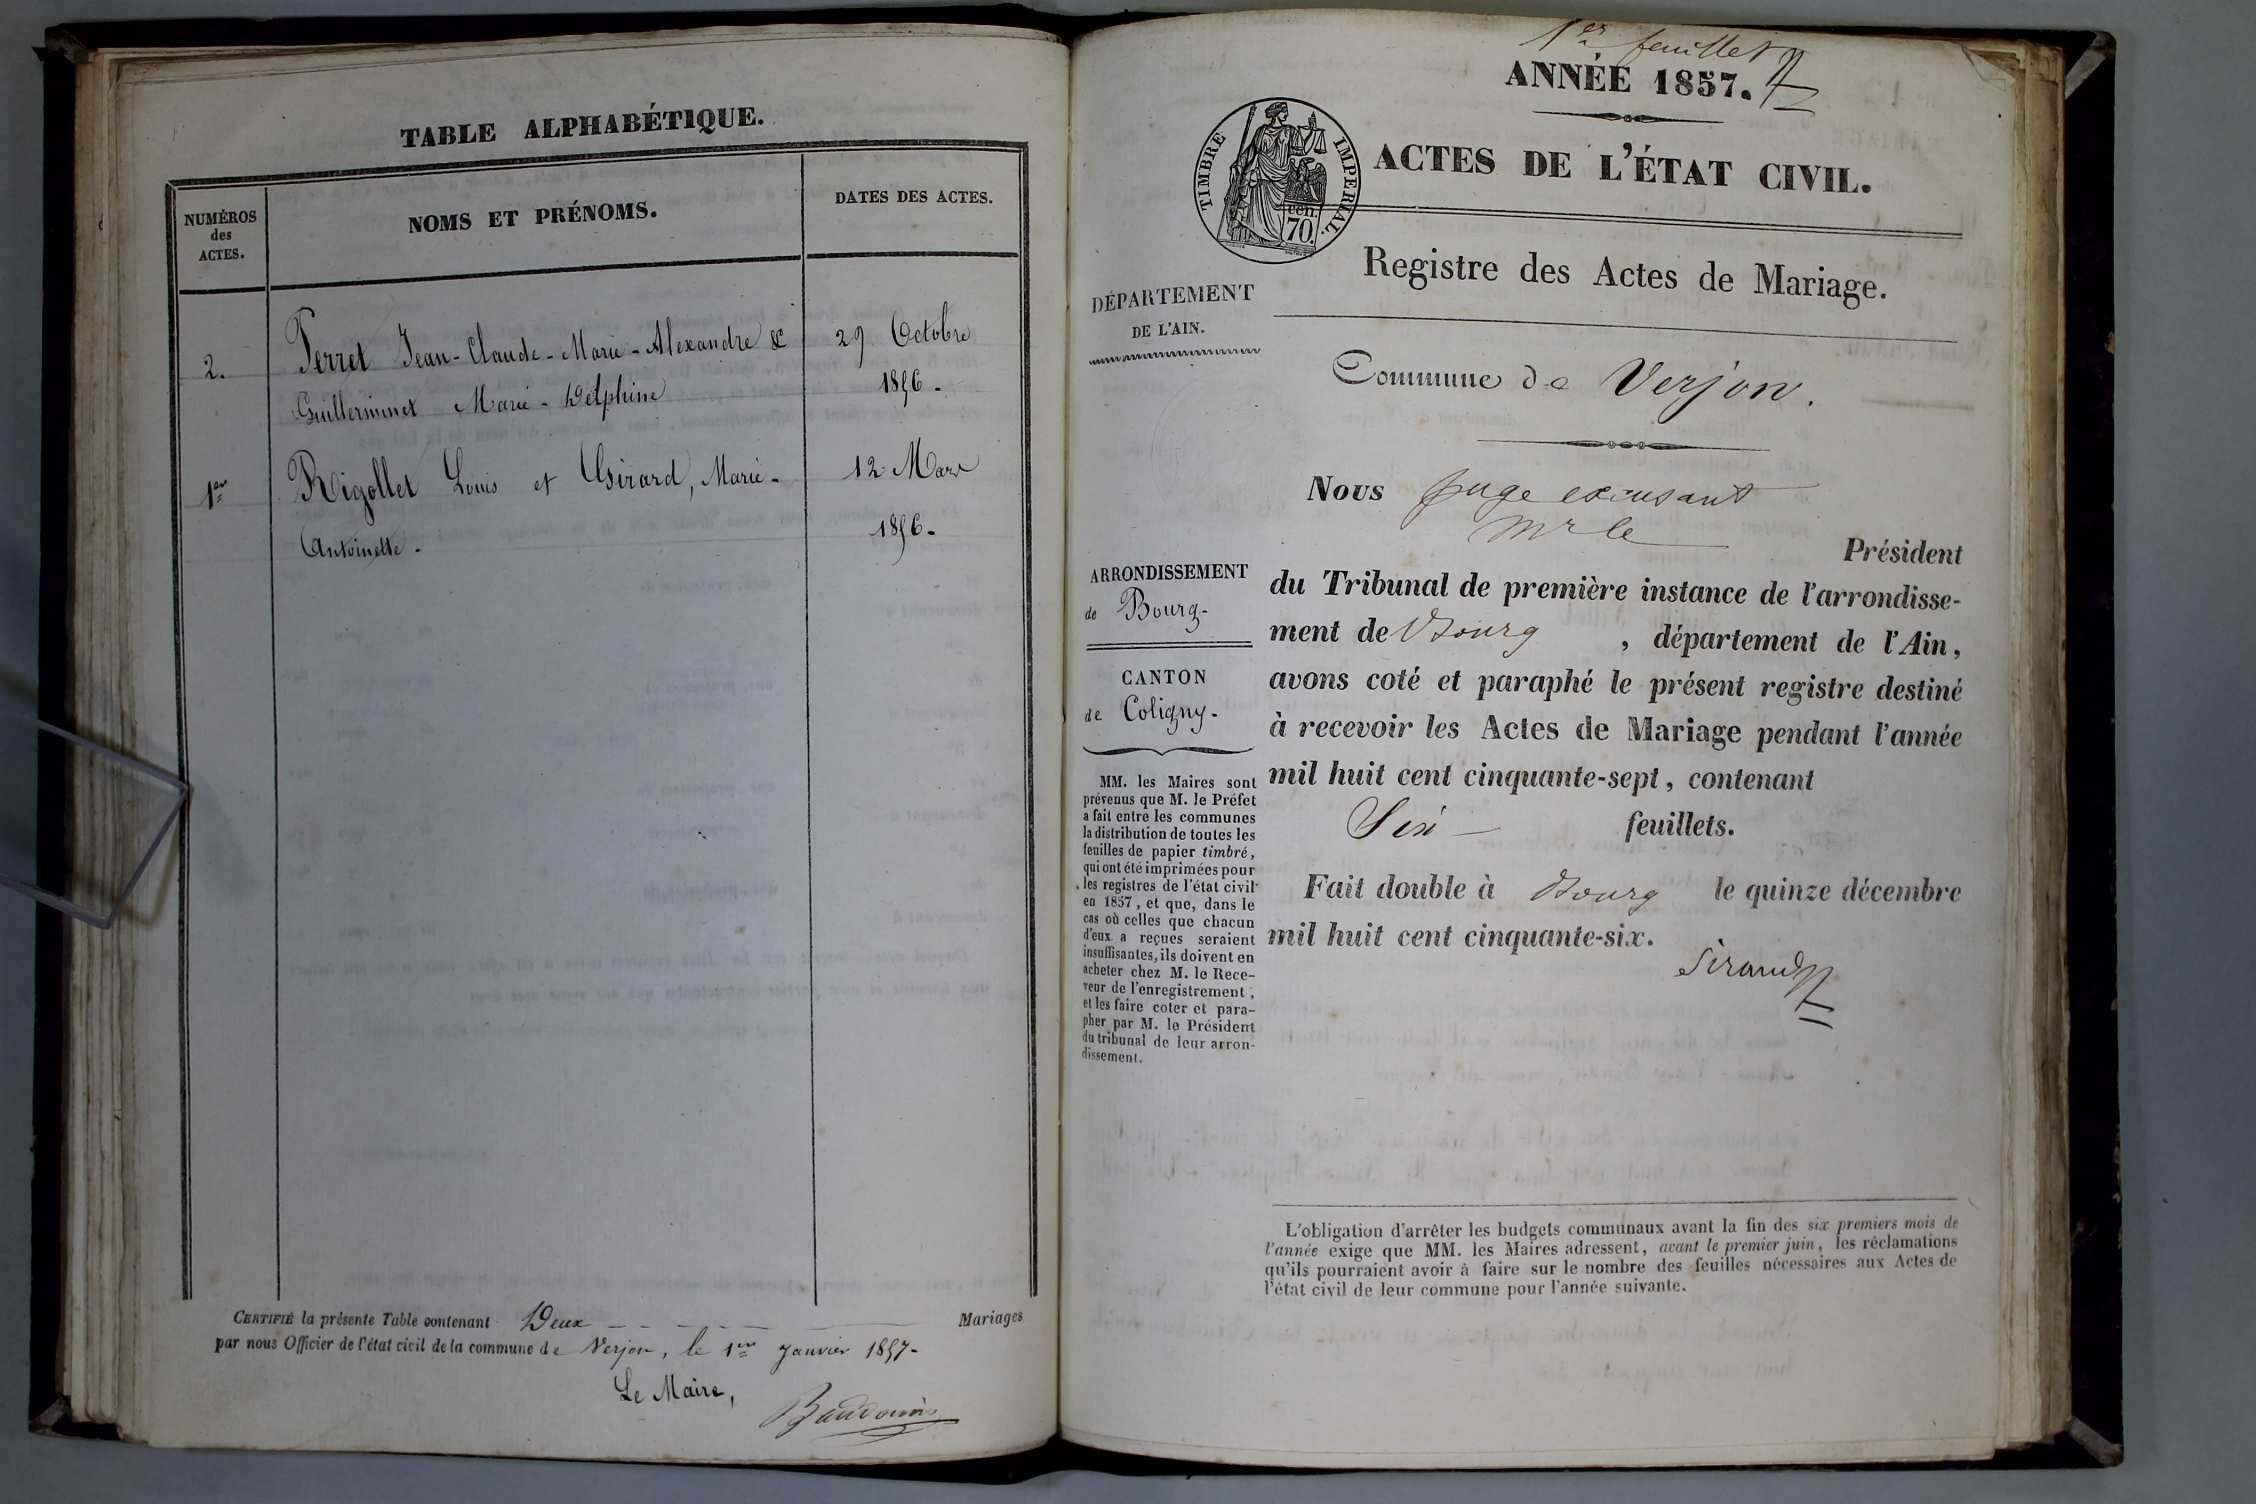 TABLE ALPHABÉTIQUE.
NUMÉROS
des
ACTES.
NOMS ET PRÉNOMS.
DATES DES ACTES.
2.
Perret Jean-Claude-Marie-Alexandre &
29 Octobre
Guillerminet Marie-Delphine
1856-
1er
Rigollet Louis et Girard, Marie-
12 Mars
Antoinette-
1856-
CERTIFIÉ la présente Table contenant Deux Mariages
par nous Officier de l'état civil de la commune de Verjon, le 1er Janvier 1857-
Le Maire,
Baudouin
1er feuillet
ANNÉE 1857.
TIMBRE IMPERIAL.
cen. 70.
ACTES DE L'ÉTAT CIVIL.
Registre des Actes de Mariage.
DÉPARTEMENT
DE L'AIN.
Commune de Verjon.
Nous Juge excusant
Mr le
Président
du Tribunal de première instance de l'arrondisse-
ment de Bourg , département de l'Ain,
avons coté et paraphé le présent registre destiné
à recevoir les Actes de Mariage pendant l'année
mil huit cent cinquante-sept, contenant
Six feuillets.
Fait double à Bourg le quinze décembre
mil huit cent cinquante-six.
Sirand
ARRONDISSEMENT
de Bourg-
CANTON
de Coligny-
MM. les Maires sont
prévenus que M. le Préfet
a fait entre les communes
la distribution de toutes les
feuilles de papier timbré,
qui ont été imprimées pour
les registres de l'état civil
en 1857, et que, dans le
cas où celles que chacun
d'eux a reçues seraient
insuffisantes, ils doivent en
acheter chez M. le Rece-
veur de l'enregistrement,
et les faire coter et para-
pher par M. le Président
du tribunal de leur arron-
dissement.
L'obligation d'arrêter les budgets communaux avant la fin des six premiers mois de
l'année exige que MM. les Maires adressent, avant le premier juin, les réclamations
qu'ils pourraient avoir à faire sur le nombre des feuilles nécessaires aux Actes de
l'état civil de leur commune pour l'année suivante.